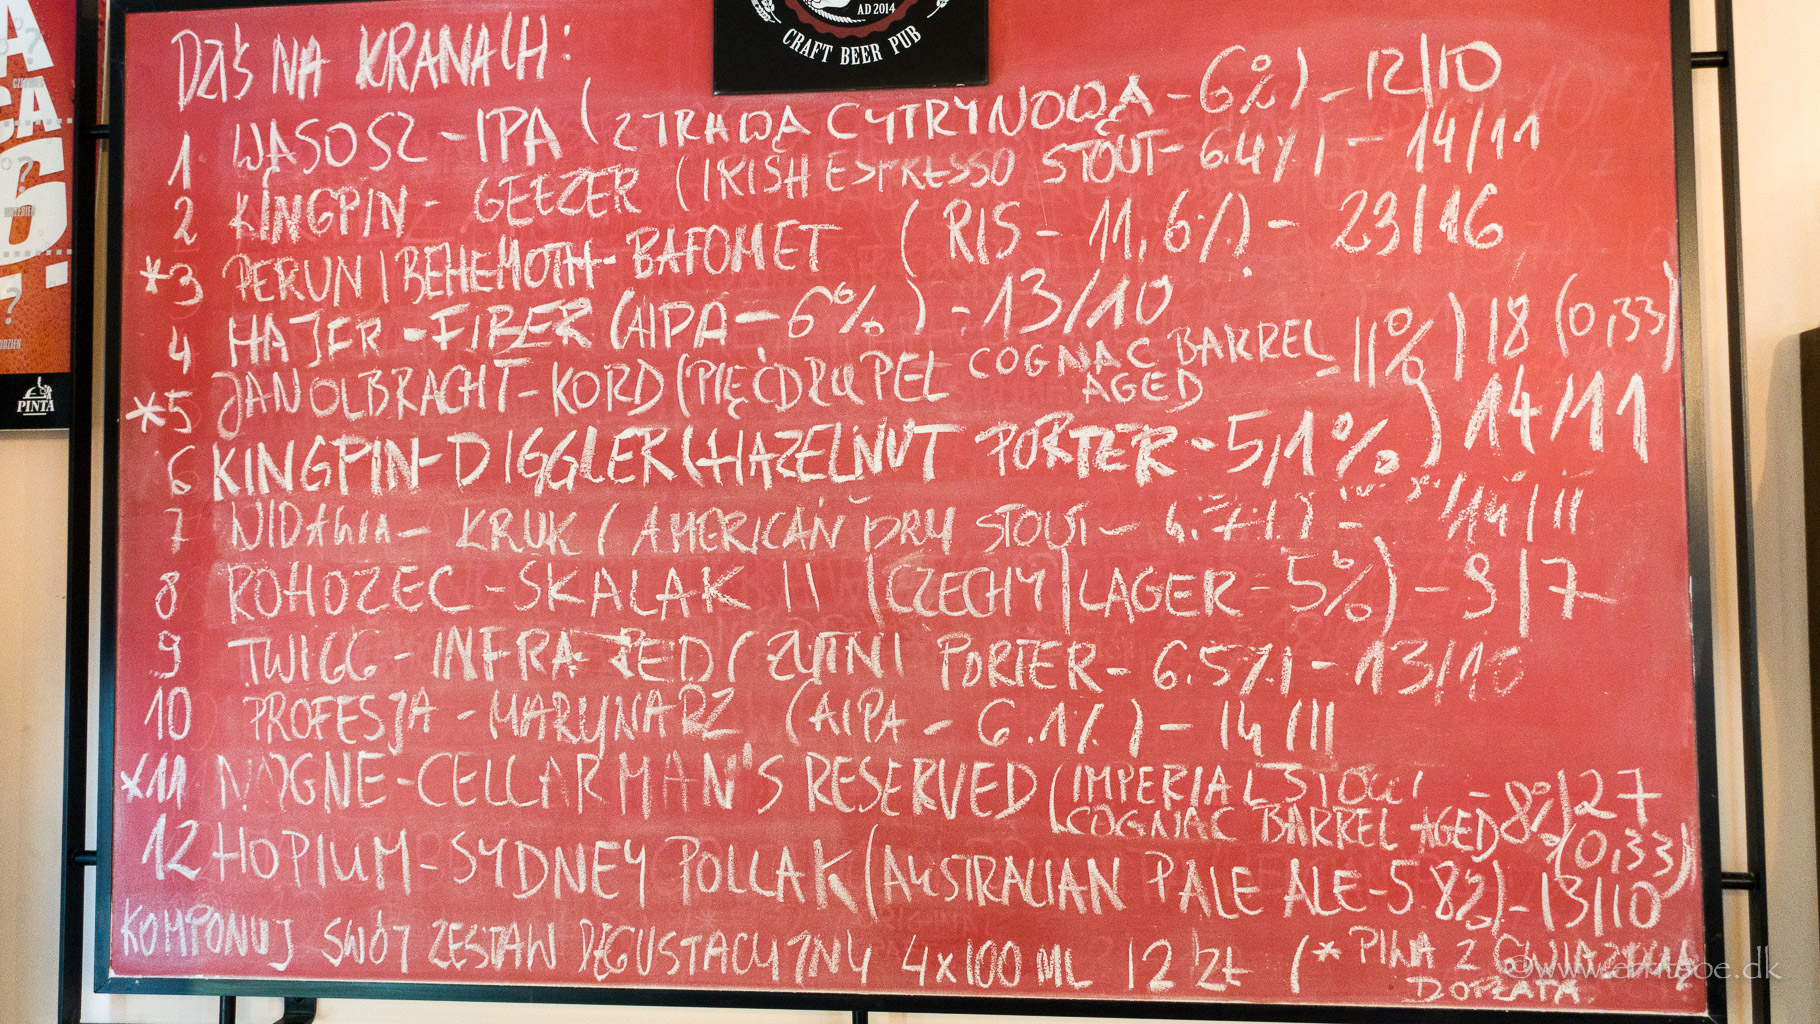 AD 2014
CRAFT BEER PUB
DZIŚ NA KRANACH:
1 WĄSOSZ - IPA (Z TRAWĄ CYTRYNOWĄ - 6%) - 12/10
2 KINGPIN - GEEZER (IRISH ESPRESSO STOUT - 6.4%) - 14/11
*3 PERUN / BEHEMOTH - BAFOMET (RIS - 11,6%) - 23/16
4 HAJER - FIBER (AIPA - 6%) - 13/10
*5 JAN OLBRACHT - KORD (PIĘĆDRUPEL COGNAC BARREL AGED - 11%) 18 (0,33)
6 KINGPIN - DIGGLER (HAZELNUT PORTER - 5,1%) 14/11
7 WIDAWA - KRUK (AMERICAN DRY STOUT - 4.7%) - 14/11
8 ROHOZEC - SKALAK 11 |CZECHY| LAGER - 5%) - 9/7
9 TWIGG - INFRA RED (ŻYTNI PORTER - 6.5%) - 13/10
10 PROFESJA - MARYNARZ (AIPA - 6.1%) - 14/11
*11 NØGNE - CELLARMAN'S RESERVED (IMPERIAL STOUT - 8%) 27
COGNAC BARREL AGED (0,33)
12 HOPIUM - SYDNEY POLLAK (AUSTRALIAN PALE ALE - 5.8%) - 13/10
KOMPONUJ SWÓJ ZESTAW DEGUSTACYJNY 4x100 ML 12 ZŁ (* PIWA Z GWIAZDKĄ
DOPŁATA
PINTA
©www.etritsoe.dk